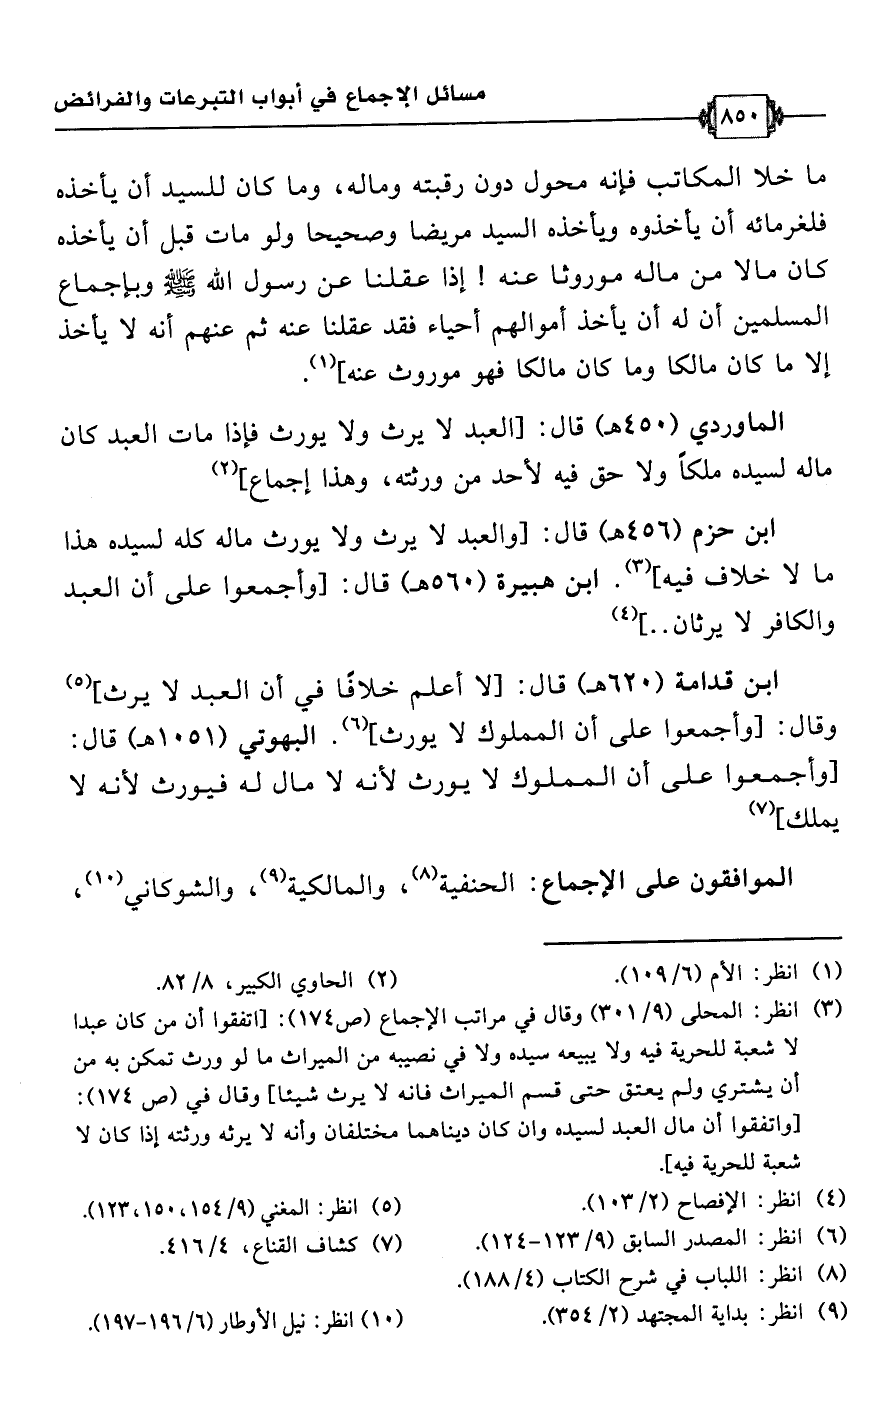 مسائل الإجماع في أبواب التبرعات والفرائض
٨٥٠
ما خلا المكاتب فإنه محول دون رقبته وماله، وما كان للسيد أن يأخذه
فلغرمائه أن يأخذوه ويأخذه السيد مريضا وصحيحا ولو مات قبل أن يأخذه
كان مالا من ماله موروثا عنه ! إذا عقلنا عن رسول الله ﷺ وبإجماع
المسلمين أن له أن يأخذ أموالهم أحياء فقد عقلنا عنه ثم عنهم أنه لا يأخذ
إلا ما كان مالكا وما كان مالكا فهو موروث عنه](١).
الماوردي (٤٥٠هـ) قال: [العبد لا يرث ولا يورث فإذا مات العبد كان
ماله لسيده ملكاً ولا حق فيه لأحد من ورثته، وهذا إجماع](٢)
ابن حزم (٤٥٦هـ) قال: [والعبد لا يرث ولا يورث ماله كله لسيده هذا
ما لا خلاف فيه](٣). ابن هبيرة (٥٦٠هـ) قال: [وأجمعوا على أن العبد
والكافر لا يرثان..](٤)
ابن قدامة (٦٢٠هـ) قال: [لا أعلم خلافًا في أن العبد لا يرث](٥)
وقال: [وأجمعوا على أن المملوك لا يورث](٦). البهوتي (١٠٥١هـ) قال:
[وأجمعوا على أن المملوك لا يورث لأنه لا مال له فيورث لأنه لا
يملك](٧)
الموافقون على الإجماع: الحنفية(٨)، والمالكية(٩)، والشوكاني(١٠)،
(١) انظر: الأم (٦/ ١٠٩). (٢) الحاوي الكبير، ٨/ ٨٢.
(٣) انظر: المحلى (٩/ ٣٠١) وقال في مراتب الإجماع (ص١٧٤): [اتفقوا أن من كان عبدا
لا شعبة للحرية فيه ولا يبيعه سيده ولا في نصيبه من الميراث ما لو ورث تمكن به من
أن يشتري ولم يعتق حتى قسم الميراث فانه لا يرث شيئا] وقال في (ص ١٧٤):
[واتفقوا أن مال العبد لسيده وان كان ديناهما مختلفان وأنه لا يرثه ورثته إذا كان لا
شعبة للحرية فيه].
(٤) انظر: الإفصاح (٢/ ١٠٣). (٥) انظر: المغني (٩/ ١٥٤، ١٥٠، ١٢٣).
(٦) انظر: المصدر السابق (٩/ ١٢٣-١٢٤). (٧) كشاف القناع، ٤/ ٤١٦.
(٨) انظر: اللباب في شرح الكتاب (٤/ ١٨٨).
(٩) انظر: بداية المجتهد (٢/ ٣٥٤). (١٠) انظر: نيل الأوطار (٦/ ١٩٦-١٩٧).